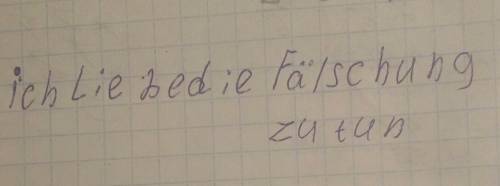 ich Liebe die Fälschung
zu tun